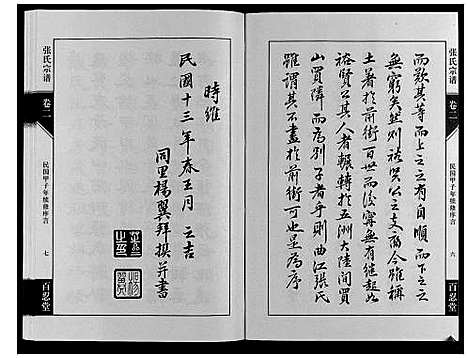 而歎其等而上之之有自順而下之之
無窮矣然則裕賢公之支裔今雖稱
土著於前街百世而流寧無有繼起如
裕賢公其人者輾轉於五洲大陸間買
山買隣而為別子者乎則曲江張氏
雖謂其不盡於前街可也是為序
六
民国甲子年续修序言
卷二
张氏宗谱
百忍堂
時維
民國十三年春王月之吉
同里楊翼拜撰并書
张氏宗谱
卷二
民国甲子年续修序言
七
百忍堂